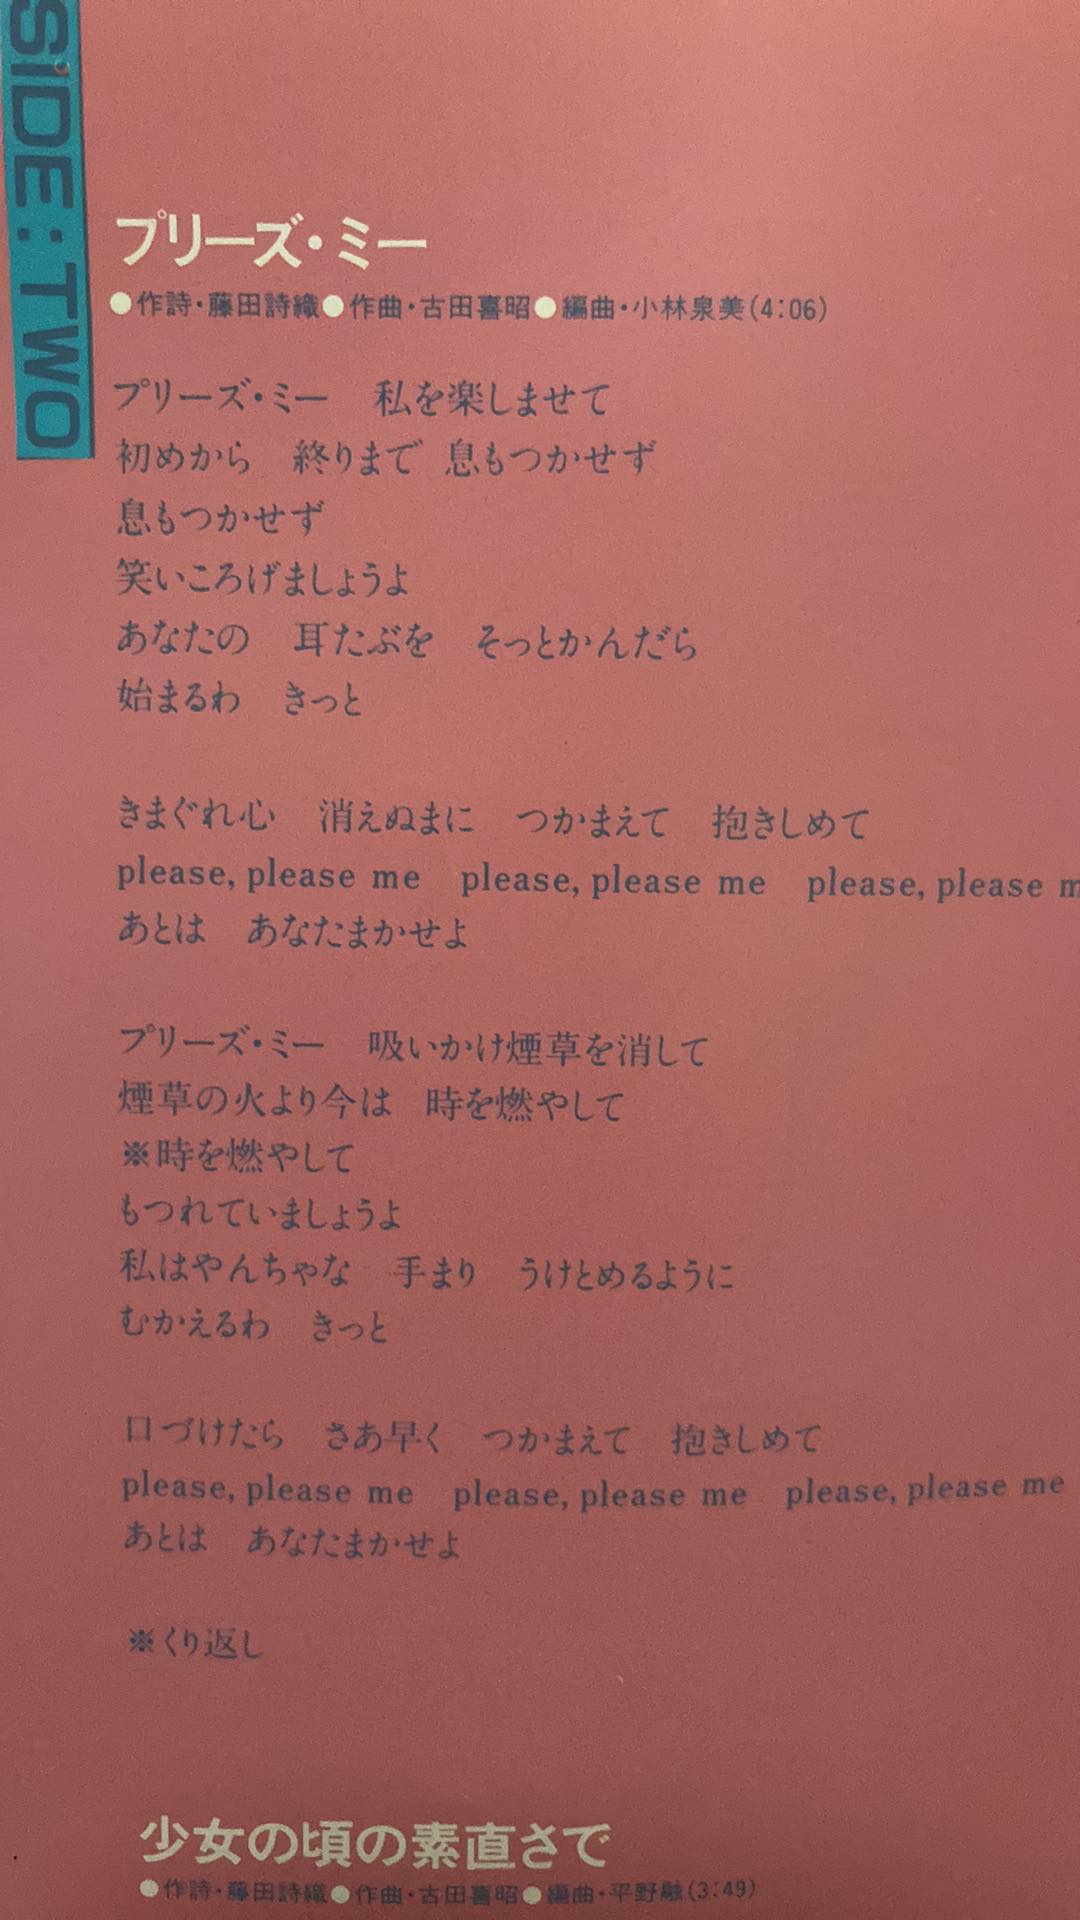 SIDE: TWO
プリーズ・ミー
●作詩・藤田詩織●作曲・古田喜昭●編曲・小林泉美(4:06)
プリーズ・ミー　私を楽しませて
初めから　終りまで　息もつかせず
息もつかせず
笑いころげましょうよ
あなたの　耳たぶを　そっとかんだら
始まるわ　きっと
きまぐれ心　消えぬまに　つかまえて　抱きしめて
please, please me　please, please me　please, please m
あとは　あなたまかせよ
プリーズ・ミー　吸いかけ煙草を消して
煙草の火より今は　時を燃やして
※時を燃やして
もつれていましょうよ
私はやんちゃな　手まり　うけとめるように
むかえるわ　きっと
口づけたら　さあ早く　つかまえて　抱きしめて
please, please me　please, please me　please, please me
あとは　あなたまかせよ
※くり返し
少女の頃の素直さで
●作詩・藤田詩織●作曲・古田喜昭●編曲・平野融(3:49)